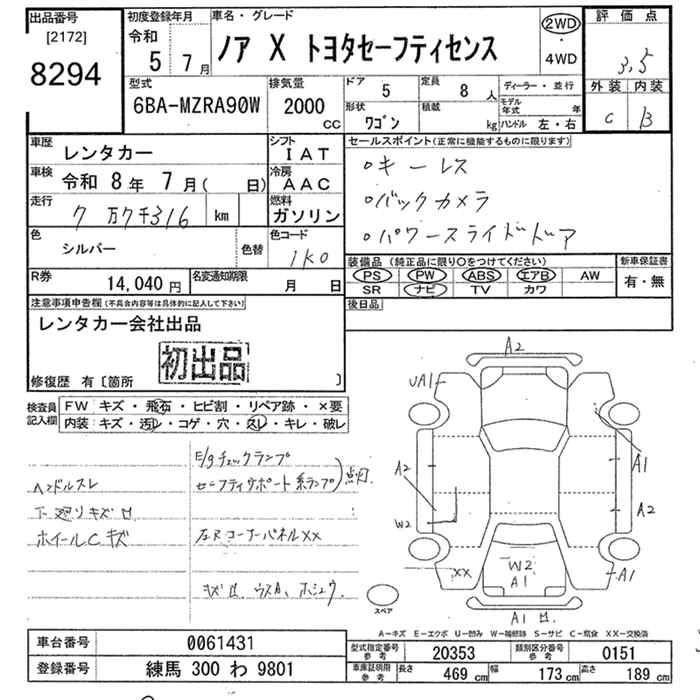 出品番号
[2172]
8294
初度登録年月
令和
5 7月
車名・グレード
ノア X トヨタセーフティセンス
2WD
・
4WD
評価点
3,5
外装 内装
C B
型式
6BA-MZRA90W
排気量
2000
CC
ドア
5
定員
8 人
ディーラー・並行
形状
ワゴン
積載
kg
モデル年式 年
ハンドル 左・右
車歴
レンタカー
シフト
IAT
車検
令和 8年 7月( 日)
冷房
AAC
走行
7万7千316 km
燃料
ガソリン
色
シルバー
色替
色コード
1K0
R券
14,040 円
名変通知期限
月 日
セールスポイント(正常に機能するものに限ります)
・キーレス
・バックカメラ
・パワースライドドア
装備品 (純正品に限り○をつけてください)
PS PW ABS エアB AW
SR ナビ TV カワ
新車保証書
有・無
後日品
注意事項申告欄(不具合内容等は具体的に記入して下さい)
レンタカー会社出品
初出品
修復歴 有〔箇所 〕
検査員記入欄
FW キズ・飛石・ヒビ割・リペア跡・×要
内装: キズ・汚レ・コゲ・穴・スレ・キレ・破レ
E/gチェックランプ
セーフティサポート系ランプ)点灯
ハンドルスレ
下廻りキズ
ホイールCキズ
左RコーナーパネルXX
A2
UA1
A1
A2
A2
W2
XX
W2
A1
A1
A1
スペア
A-キズ E-エクボ U-凹み W-補修跡 S-サビ C-腐食 XX-交換済
車台番号
0061431
登録番号
練馬 300 わ 9801
型式指定番号
参考
20353
類別区分番号
参考
0151
車庫証明用
参考
長さ
469 cm
幅
173 cm
高さ
189 cm